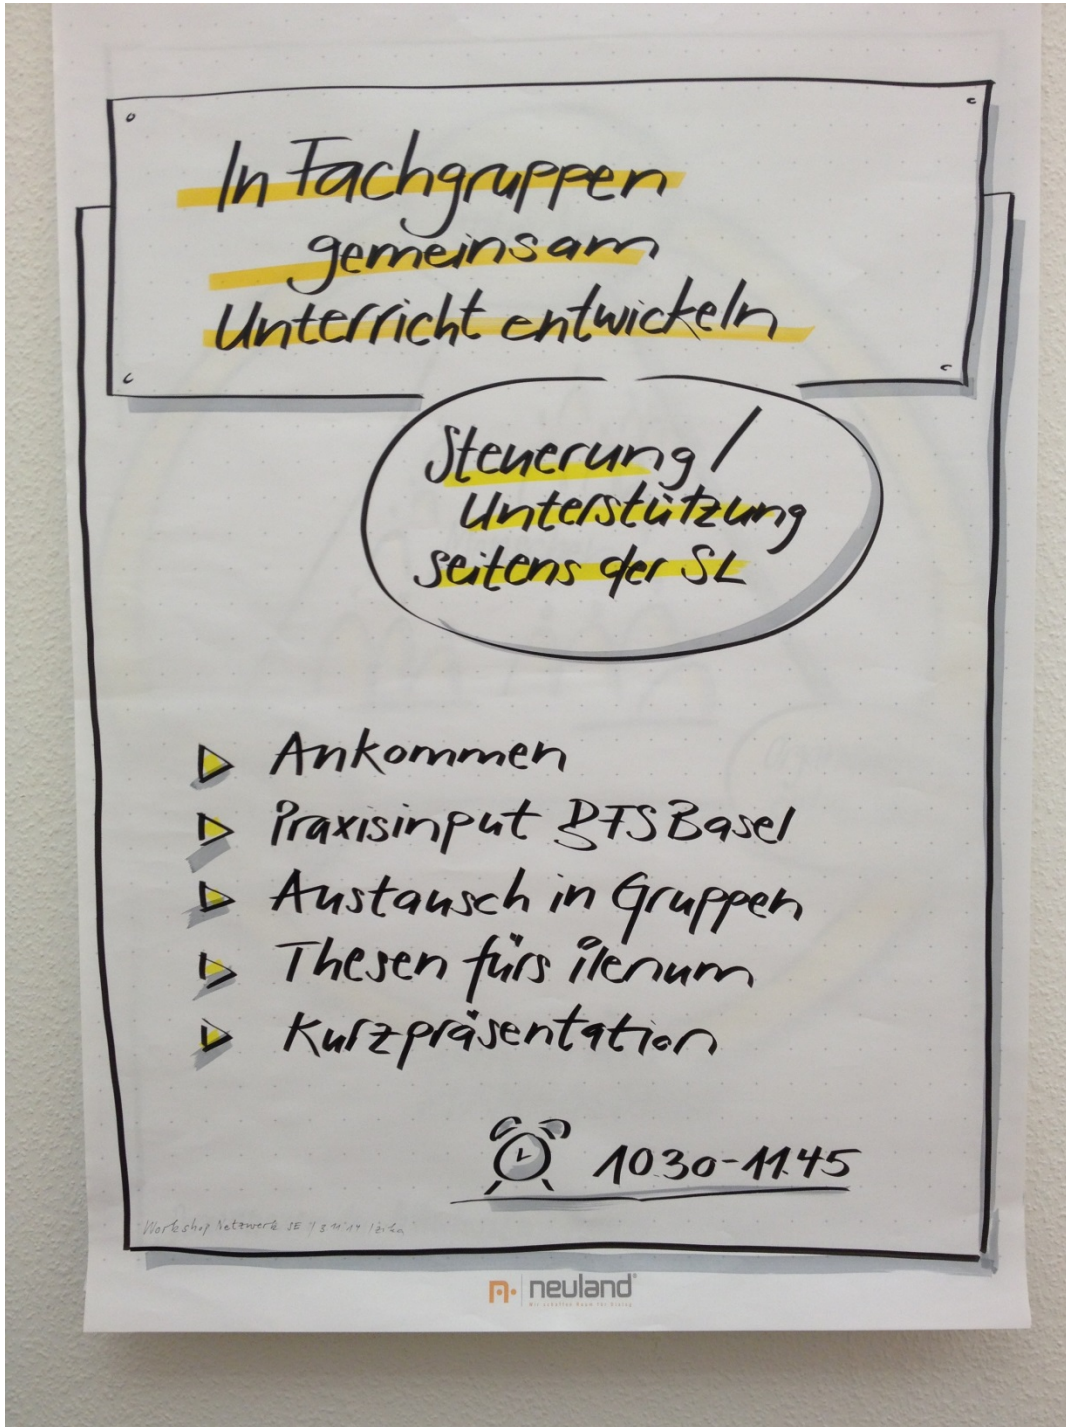 In Fachgruppen
gemeinsam
Unterricht entwickeln
Steuerung /
Unterstützung
seitens der SL
Ankommen
Praxisinput BFS Basel
Austausch in Gruppen
Thesen fürs Plenum
Kurzpräsentation
10.30-11.45
Workshop Netzwerk SE
neuland
Wir schaffen Raum für Dialog